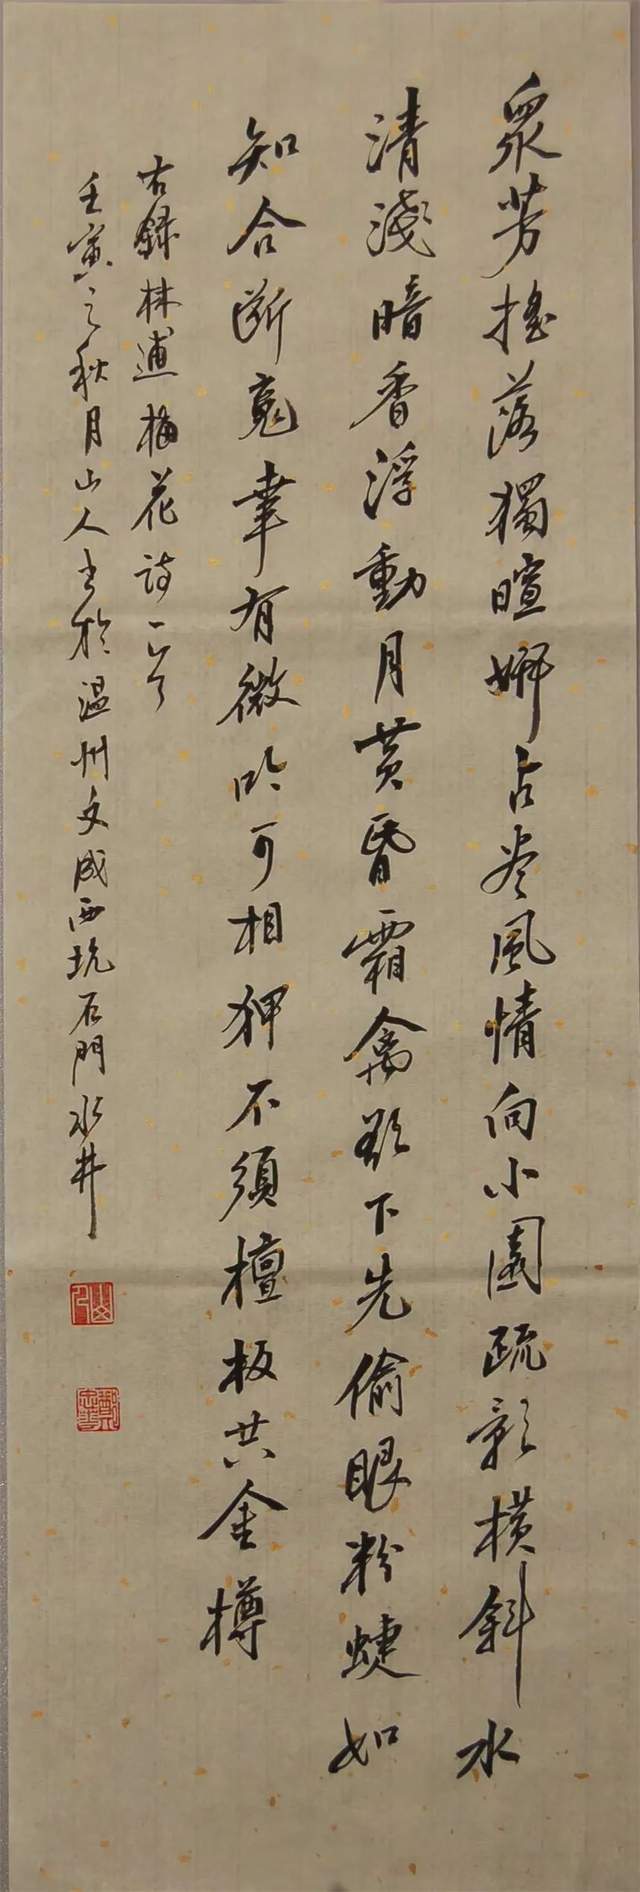 眾芳搖落獨暄妍占尽風情向小園疏影橫斜水
清淺暗香浮動月黃昏霜禽欲下先偷眼粉蜨如
知合斷魂幸有微吟可相狎不須檀板共金樽
右錄林逋梅花詩一首
壬寅之秋月山人書於温州文成西坑石門水井